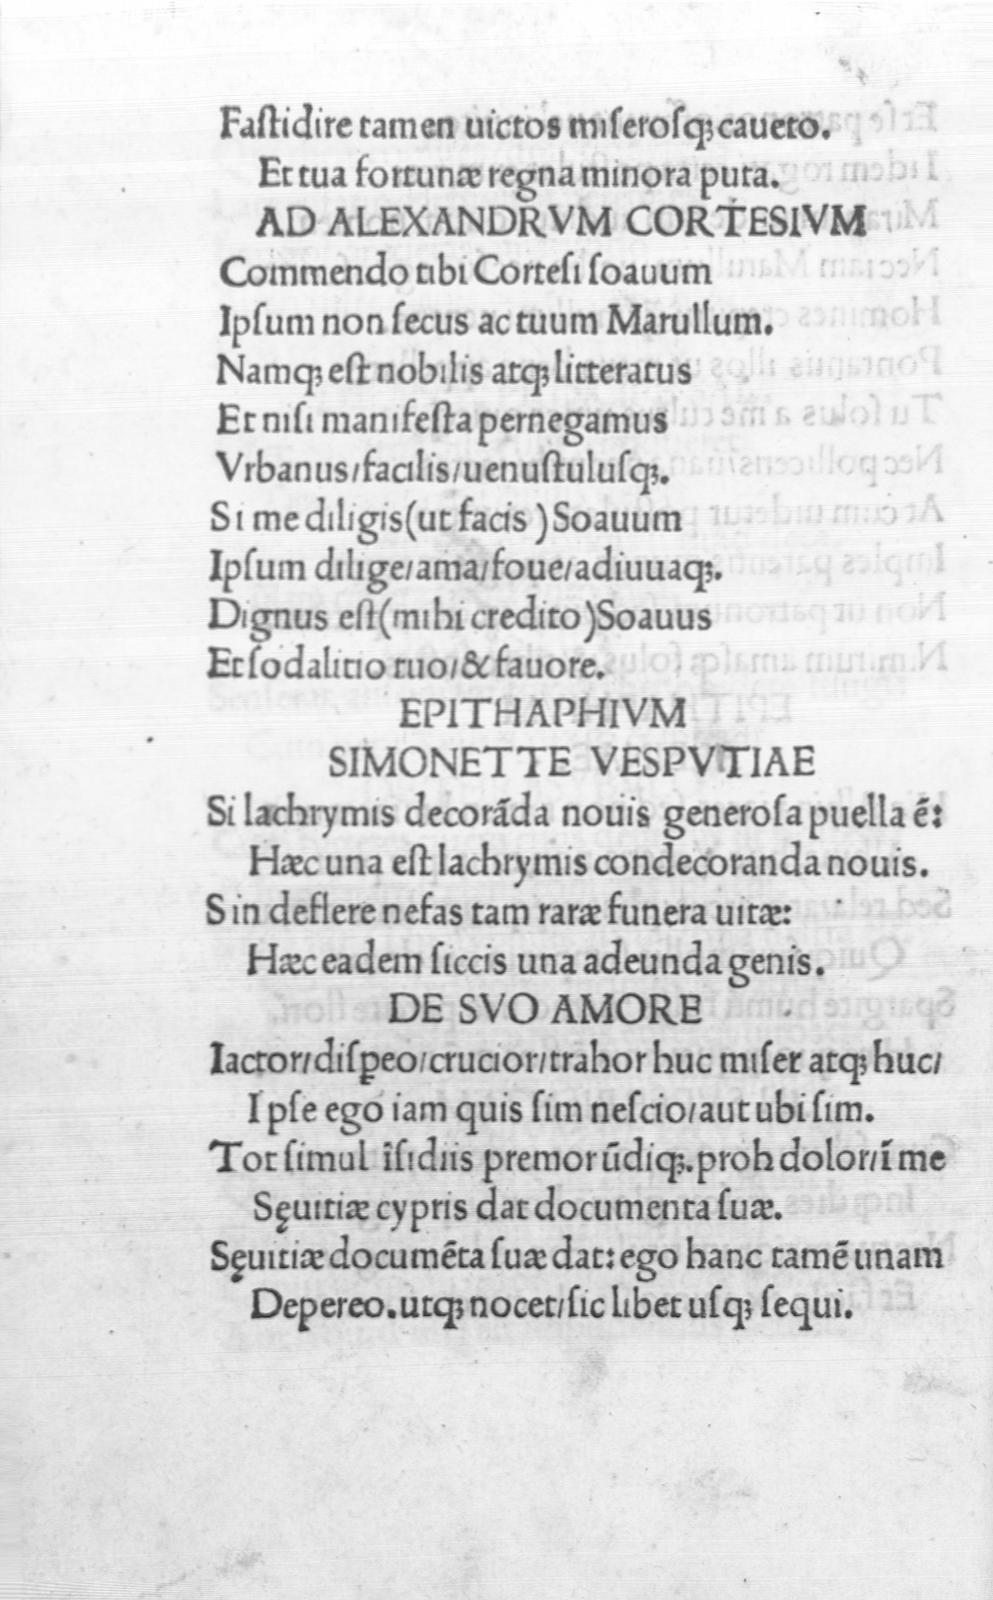 Faſtidire tamen uictos miſeroſq; caueto.
Et tua fortunæ regna minora puta.
AD ALEXANDRVM CORTESIVM
Commendo tibi Corteſi ſoauum
Ipſum non ſecus ac tuum Marullum.
Namq; eſt nobilis atq; litteratus
Et niſi manifeſta pernegamus
Vrbanus/facilis/uenuſtuluſq;.
Si me diligis(ut facis )Soauum
Ipſum dilige/ama/foue/adiuuaq;.
Dignus eſt(mihi credito)Soauus
Et ſodalitio tuo/& fauore.
EPITHAPHIVM
SIMONETTE VESPVTIAE
Si lachrymis decorāda nouis generoſa puella ē:
Hæc una eſt lachrymis condecoranda nouis.
Sin deflere nefas tam raræ funera uitæ:
Hæc eadem ſiccis una adeunda genis.
DE SVO AMORE
Iactor/diſꝑeo/crucior/trahor huc miſer atq; huc/
Ipſe ego iam quis ſim neſcio/aut ubi ſim.
Tot ſimul īſidiis premor ūdiq;. proh dolor/ī me
Sęuitiæ cypris dat documenta ſuæ.
Sęuitiæ documēta ſuæ dat: ego hanc tamē unam
Depereo. utq; nocet/ſic libet uſq; ſequi.